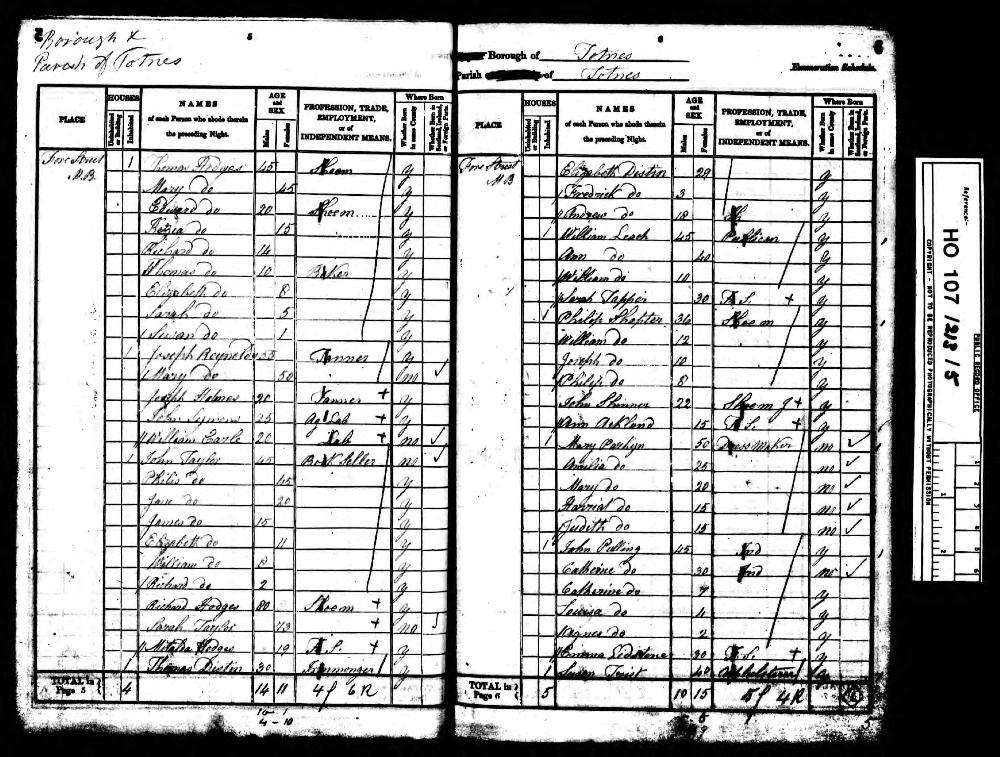 Borough &
Parish of Totnes
5
PLACE
HOUSES
Uninhabited or Building
Inhabited
NAMES
of each Person who abode therein
the preceding Night.
AGE and SEX
Males
Females
PROFESSION, TRADE,
EMPLOYMENT,
or of
INDEPENDENT MEANS.
Where Born
Whether Born in same County
Whether Born in Scotland, Ireland, or Foreign Parts.
Fore Street 1 Thomas Hodges 45 Shoem y
M.B. Mary do 45 y
Edward do 20 Shoem y
Kezia do 15 y
Richard do 14 y
Thomas do 10 Baker y
Elizabeth do 8 y
Sarah do 5 y
Susan do 1 y
1 Joseph Reynolds 55 Tanner y
Mary do 50 no
Joseph Holmes 20 Tanner + y
John 25 Ag Lab + y
William Earle 20 Lab + no
1 John Taylor 45 Book Seller no
Philis do 45 y
Jane do 20 y
James do 15 y
Elizabeth do 11 y
William do 8 y
Richard do 2 y
Richard Hodges 80 Shoem + y
Sarah Taylor 73 + no
Matilda Hodges 19 F.S. + y
1 Thomas Distin 30 Ironmonger y
TOTAL in Page 5 4 14 11 4 f 6 R
6
Borough of Totnes
Parish of Totnes
Enumeration Schedule.
PLACE
HOUSES
Uninhabited or Building
Inhabited
NAMES
of each Person who abode therein
the preceding Night.
AGE and SEX
Males
Females
PROFESSION, TRADE,
EMPLOYMENT,
or of
INDEPENDENT MEANS.
Where Born
Whether Born in same County
Whether Born in Scotland, Ireland, or Foreign Parts.
Fore Street Elizabeth Distin 29 y
M.B. Fredrick do 3 y
Andrew do 18 y
1 William Leach 45 Publican y
Ann do 40 y
William do 10 y
Sarah Tapper 30 F.S. + y
1 Philip Shapter 36 Shoem y
William do 12 y
Joseph do 10 y
Philip do 8 y
John Skinner 22 Shoem J + y
Ann Ackland 15 F.S. + y
1 Mary 50 Dress Maker no
Amelia do 25 no
Mary do 20 no
Harriet do 15 no
Judith do 15 no
1 John Pulling 45 Ind y
Catherine do 30 Ind no
Catherine do 7 y
Louisa do 4 y
Agnes do 2 y
Emma 30 F.S. + y
1 Susan Trist 40 Upholsterer y
TOTAL in Page 6 5 10 15 4 R
Reference:-
HO 107/213/5
PUBLIC RECORD OFFICE
COPYRIGHT - NOT TO BE REPRODUCED PHOTOGRAPHICALLY WITHOUT PERMISSION